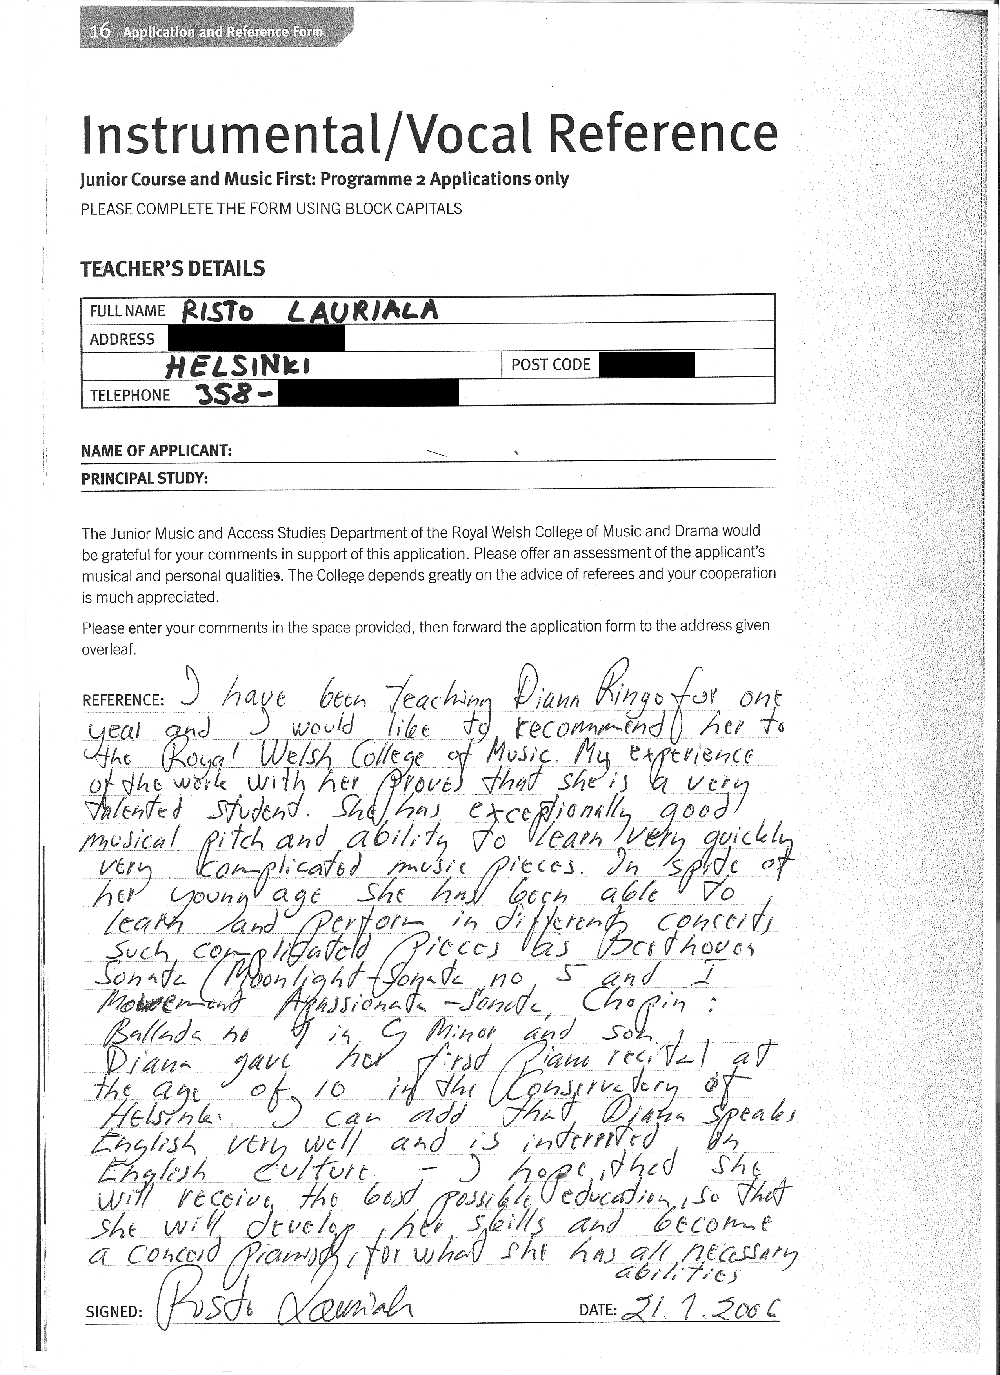 16 Application and Reference Form
Instrumental/Vocal Reference
Junior Course and Music First: Programme 2 Applications only
PLEASE COMPLETE THE FORM USING BLOCK CAPITALS
TEACHER'S DETAILS
FULL NAME RISTO LAURIALA
ADDRESS
HELSINKI POST CODE
TELEPHONE 358-
NAME OF APPLICANT:
PRINCIPAL STUDY:
The Junior Music and Access Studies Department of the Royal Welsh College of Music and Drama would
be grateful for your comments in support of this application. Please offer an assessment of the applicant's
musical and personal qualities. The College depends greatly on the advice of referees and your cooperation
is much appreciated.
Please enter your comments in the space provided, then forward the application form to the address given
overleaf.
REFERENCE: I have been Teaching Diana Ringo for one
year and I would like to recommend her to
the Royal Welsh College of Music. My experience
of the work with her proves that she is a very
talented student. She has exceptionally good
musical pitch and ability to learn very quickly
very complicated music pieces. In spite of
her young age she has been able to
learn and perform in different concerts
such complicated pieces as Beethoven
Sonata (Moonlight-Sonata no 5 and I
Movement Apassionata-Sonata, Chopin:
Ballada no in G Minor and so on.
Diana gave her first piano recital at
the age of 10 in the Conservatory of
Helsinki. I can add that Diana speaks
English very well and is interested in
English culture. - I hope, thed she
will receive the best possible education, so that
she will develop her skills and become
a concerd pianist, for what she has all necessary
abilities
SIGNED: Risto Lauriala DATE: 21.1.2006